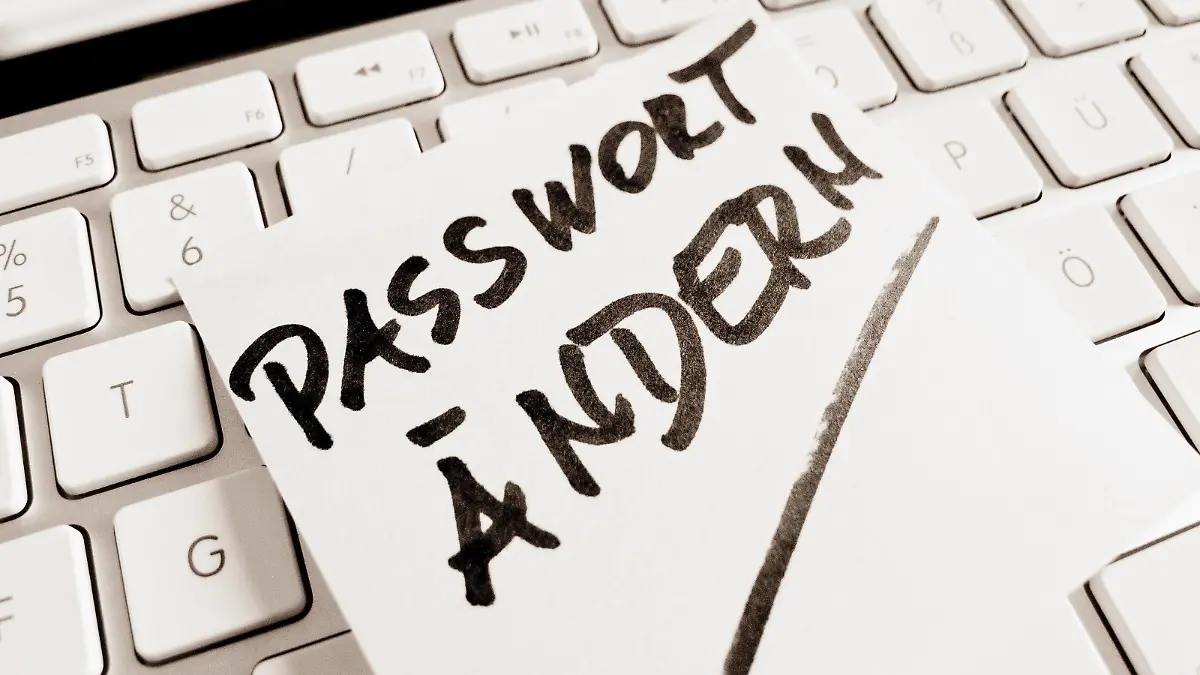 PASSWORT
ÄNDERN
F5
F6
F7
F8
%
5
&
6
/
=
?
ß
T
P
Ü
G
Ö
F